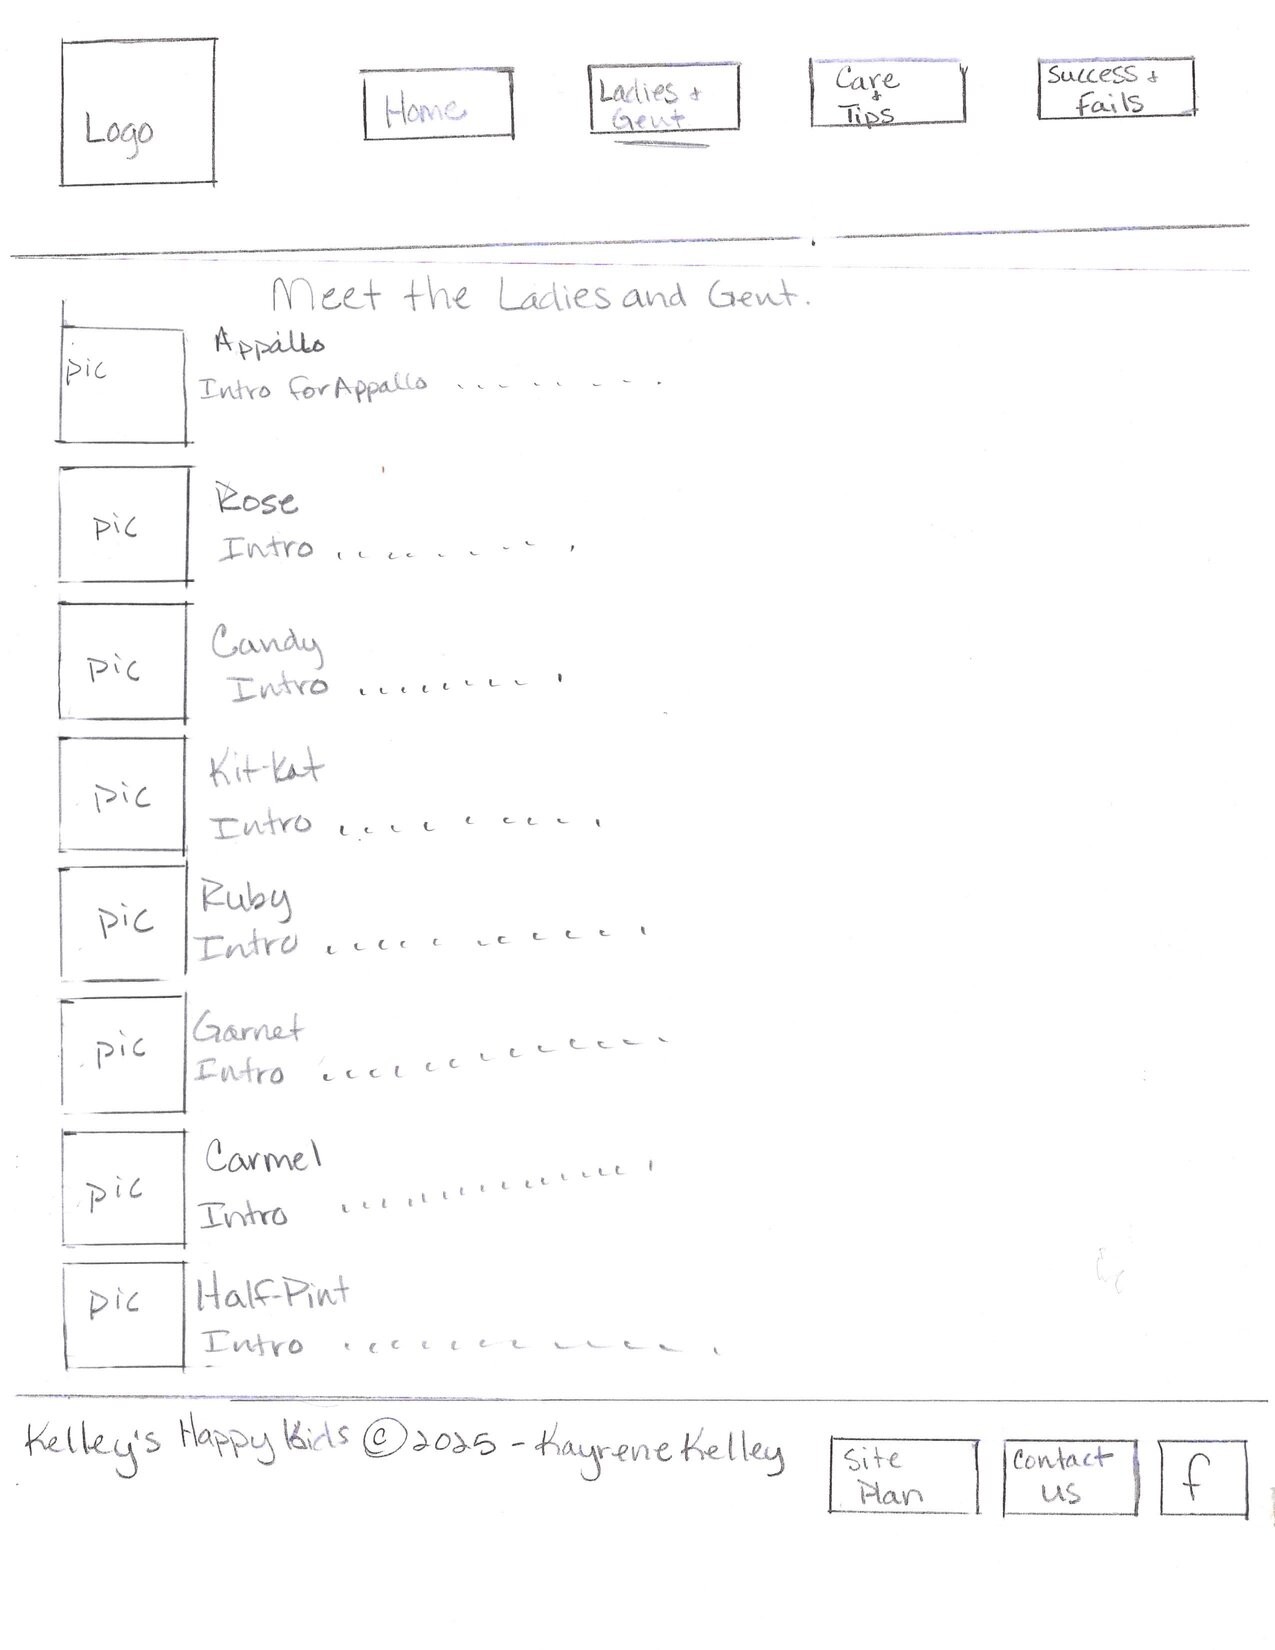 Logo
Home
Ladies &
Gent
Care
&
Tips
Success &
Fails
Meet the Ladies and Gent.
pic
Appallo
Intro for Appallo . . . . . . . . .
pic
Rose
Intro . . . . . . . . . .
pic
Candy
Intro . . . . . . . . .
pic
Kit-Kat
Intro . . . . . . . . .
pic
Ruby
Intro . . . . . . . . . . . .
pic
Garnet
Intro . . . . . . . . . . . . .
pic
Carmel
Intro . . . . . . . . . . . . . . .
pic
Half-Pint
Intro . . . . . . . . . . . . .
Kelley's Happy Kids © 2025 - Kayrene Kelley
Site
Plan
Contact
us
f